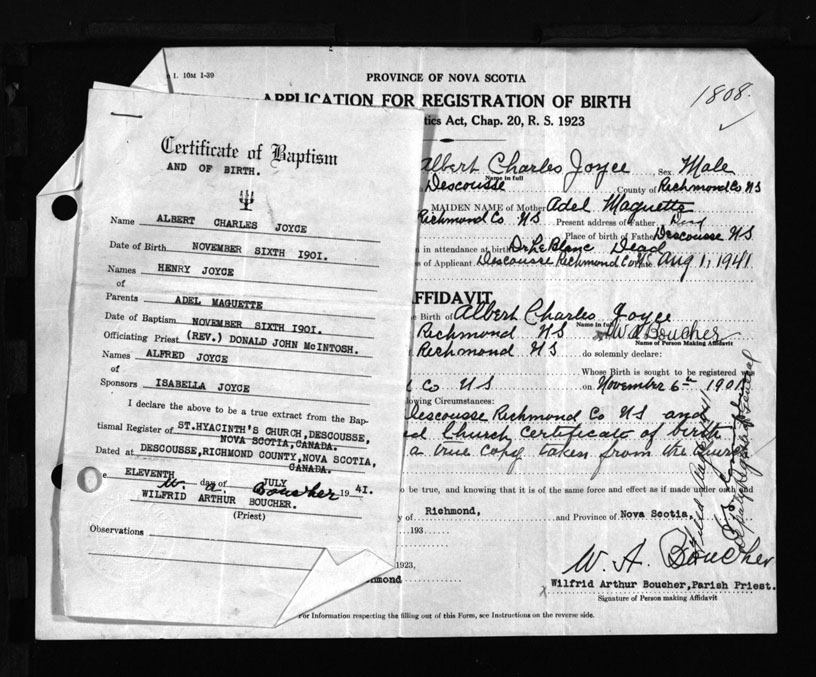 I. 10M 1-39
PROVINCE OF NOVA SCOTIA
APPLICATION FOR REGISTRATION OF BIRTH
tics Act, Chap. 20, R. S. 1923
1808.
Albert Charles Joyce Sex Male
Name in full
Descousse County of Richmond Co NS
MAIDEN NAME of Mother Adel Maguette
Richmond Co NS Present address of Father Dead
Place of birth of Father Descousse NS
n in attendance at birth Dr. LeBlanc Dead
s of Applicant Descousse Richmond Co NS Date Aug 1, 1941
AFFIDAVIT
e Birth of Albert Charles Joyce
Name in full
Richmond NS W A Boucher
Name of Person Making Affidavit
Richmond NS do solemnly declare:
Whose Birth is sought to be registered w
Co NS on November 6th 1901
lowing Circumstances:
Descousse Richmond Co NS and
Church Certificate of birth
a true copy taken from the
o be true, and knowing that it is of the same force and effect as if made under oath and
y of Richmond, and Province of Nova Scotia,
193
1923,
chmond
W. A. Boucher
x Wilfrid Arthur Boucher, Parish Priest.
Signature of Person making Affidavit
For Information respecting the filling out of this Form, see Instructions on the reverse side.
Certificate of Baptism
AND OF BIRTH.
Name ALBERT CHARLES JOYCE
Date of Birth NOVEMBER SIXTH 1901.
Names HENRY JOYCE
of
Parents ADEL MAGUETTE
Date of Baptism NOVEMBER SIXTH 1901.
Officiating Priest (REV.) DONALD JOHN McINTOSH.
Names ALFRED JOYCE
of
Sponsors ISABELLA JOYCE
I declare the above to be a true extract from the Bap-
tismal Register of ST.HYACINTH'S CHURCH, DESCOUSSE,
NOVA SCOTIA, CANADA.
Dated at DESCOUSSE, RICHMOND COUNTY, NOVA SCOTIA,
CANADA.
e ELEVENTH day of JULY 1941.
W. A. Boucher
WILFRID ARTHUR BOUCHER.
(Priest)
Observations